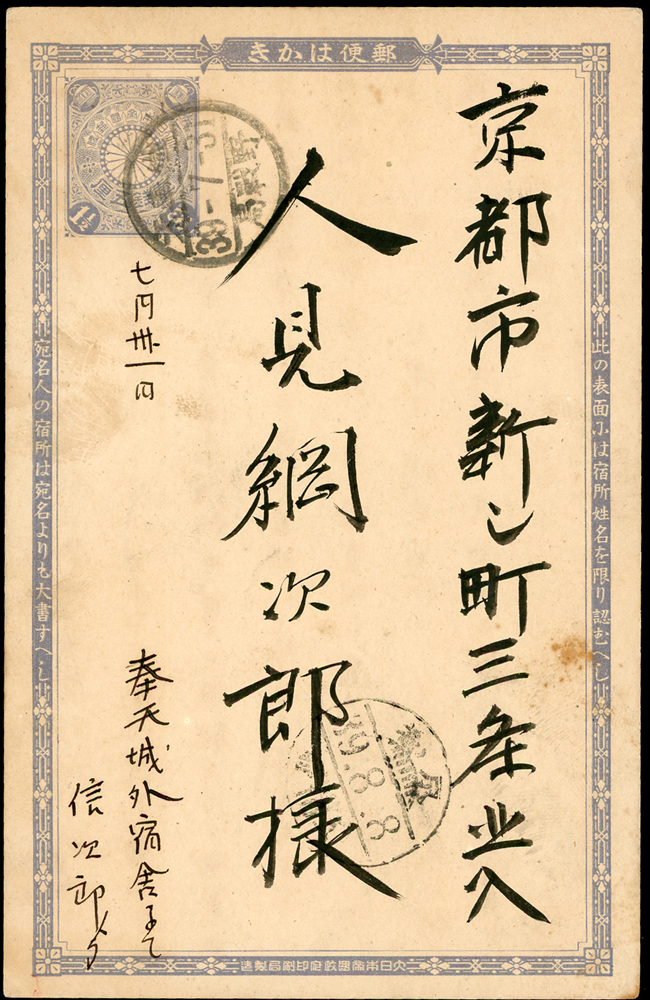 郵便はかき
此の表面には宿所姓名を限り認むへし
京都市新し町三条北入
人見綱次郎様
七月卅一日
奉天城外宿舎にて
信次郎
宛名人の宿所は宛名よりも大書すへし
大日本帝國政府印刷局製造
1½
野戰局
39.8.8